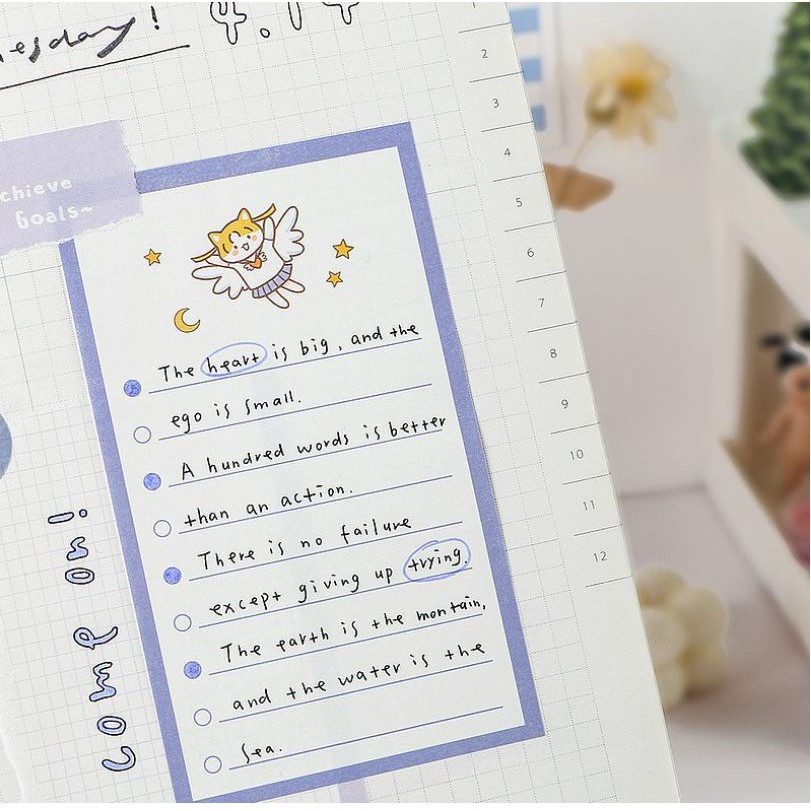 esday!
4.14
chieve
Goals~
The heart is big, and the
ego is small.
A hundred words is better
than an action.
There is no failure
except giving up trying.
The earth is the montain,
and the water is the
Sea.
Comp on!
1
2
3
4
5
6
7
8
9
10
11
12